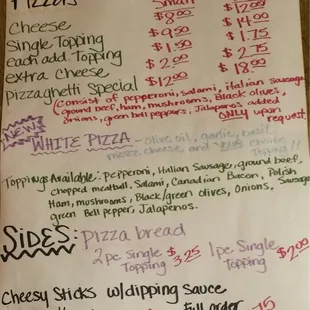 Pizzas Small
Cheese $8.00 $12.00
Single Topping $9.50 $14.00
each add. Topping $1.50 $1.75
extra Cheese $2.00 $2.75
Pizzaghetti Special $12.00 $18.00
(consist of pepperoni, salami, italian sausage
ground beef, ham, mushrooms, Black olives,
onions, green bell peppers, Jalapenos added
ONLY upon
request
New
WHITE PIZZA - olive oil, garlic, basil
mozz cheese and choice
Topping!!
Toppings Available: Pepperoni, Italian Sausage, ground beef,
chopped meatball, Salami, Canadian Bacon, Polish
Sausage
Ham, mushrooms, Black/green olives, Onions,
green Bell pepper, Jalapenos.
SIDES: Pizza bread
2pc Single $3.25 1pc Single $2.00
Topping Topping
Cheesy Sticks w/dipping sauce
Full order .75